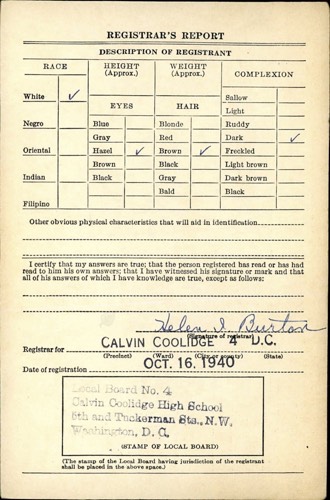 REGISTRAR'S REPORT
DESCRIPTION OF REGISTRANT
RACE
HEIGHT
(Approx.)
WEIGHT
(Approx.)
COMPLEXION
White ✓
EYES
HAIR
Sallow
Light
Negro
Blue
Blonde
Ruddy
Gray
Red
Dark ✓
Oriental
Hazel ✓
Brown ✓
Freckled
Brown
Black
Light brown
Indian
Black
Gray
Dark brown
Bald
Black
Filipino
Other obvious physical characteristics that will aid in identification
I certify that my answers are true; that the person registered has read or has had
read to him his own answers; that I have witnessed his signature or mark and that
all of his answers of which I have knowledge are true, except as follows:
Helen I. Burton
(Signature of registrar)
Registrar for CALVIN COOLIDGE 4 D.C.
(Precinct) (Ward) (City or county) (State)
Date of registration OCT. 16. 1940
Local Board No. 4
Calvin Coolidge High School
5th and Tuckerman Sts., N.W.
Washington, D. C.
(STAMP OF LOCAL BOARD)
(The stamp of the Local Board having jurisdiction of the registrant
shall be placed in the above space.)